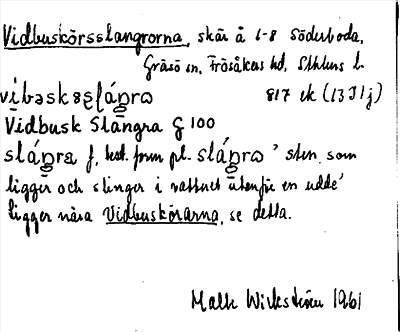 Vidbuskörsslangrorna, skär å 6-8 Söderboda,
Gräsö sn, Frösåkers hd, Sthlms l.
817 ek (13 I 1j)
Vidbusk Slängra G 100
sláŋra f, best. form pl. sláŋrɷ 'sten som
ligger och slinger i vattnet utanför en udde'
ligger nära Vidbuskörarna, se detta.
Malte Wickström 1961